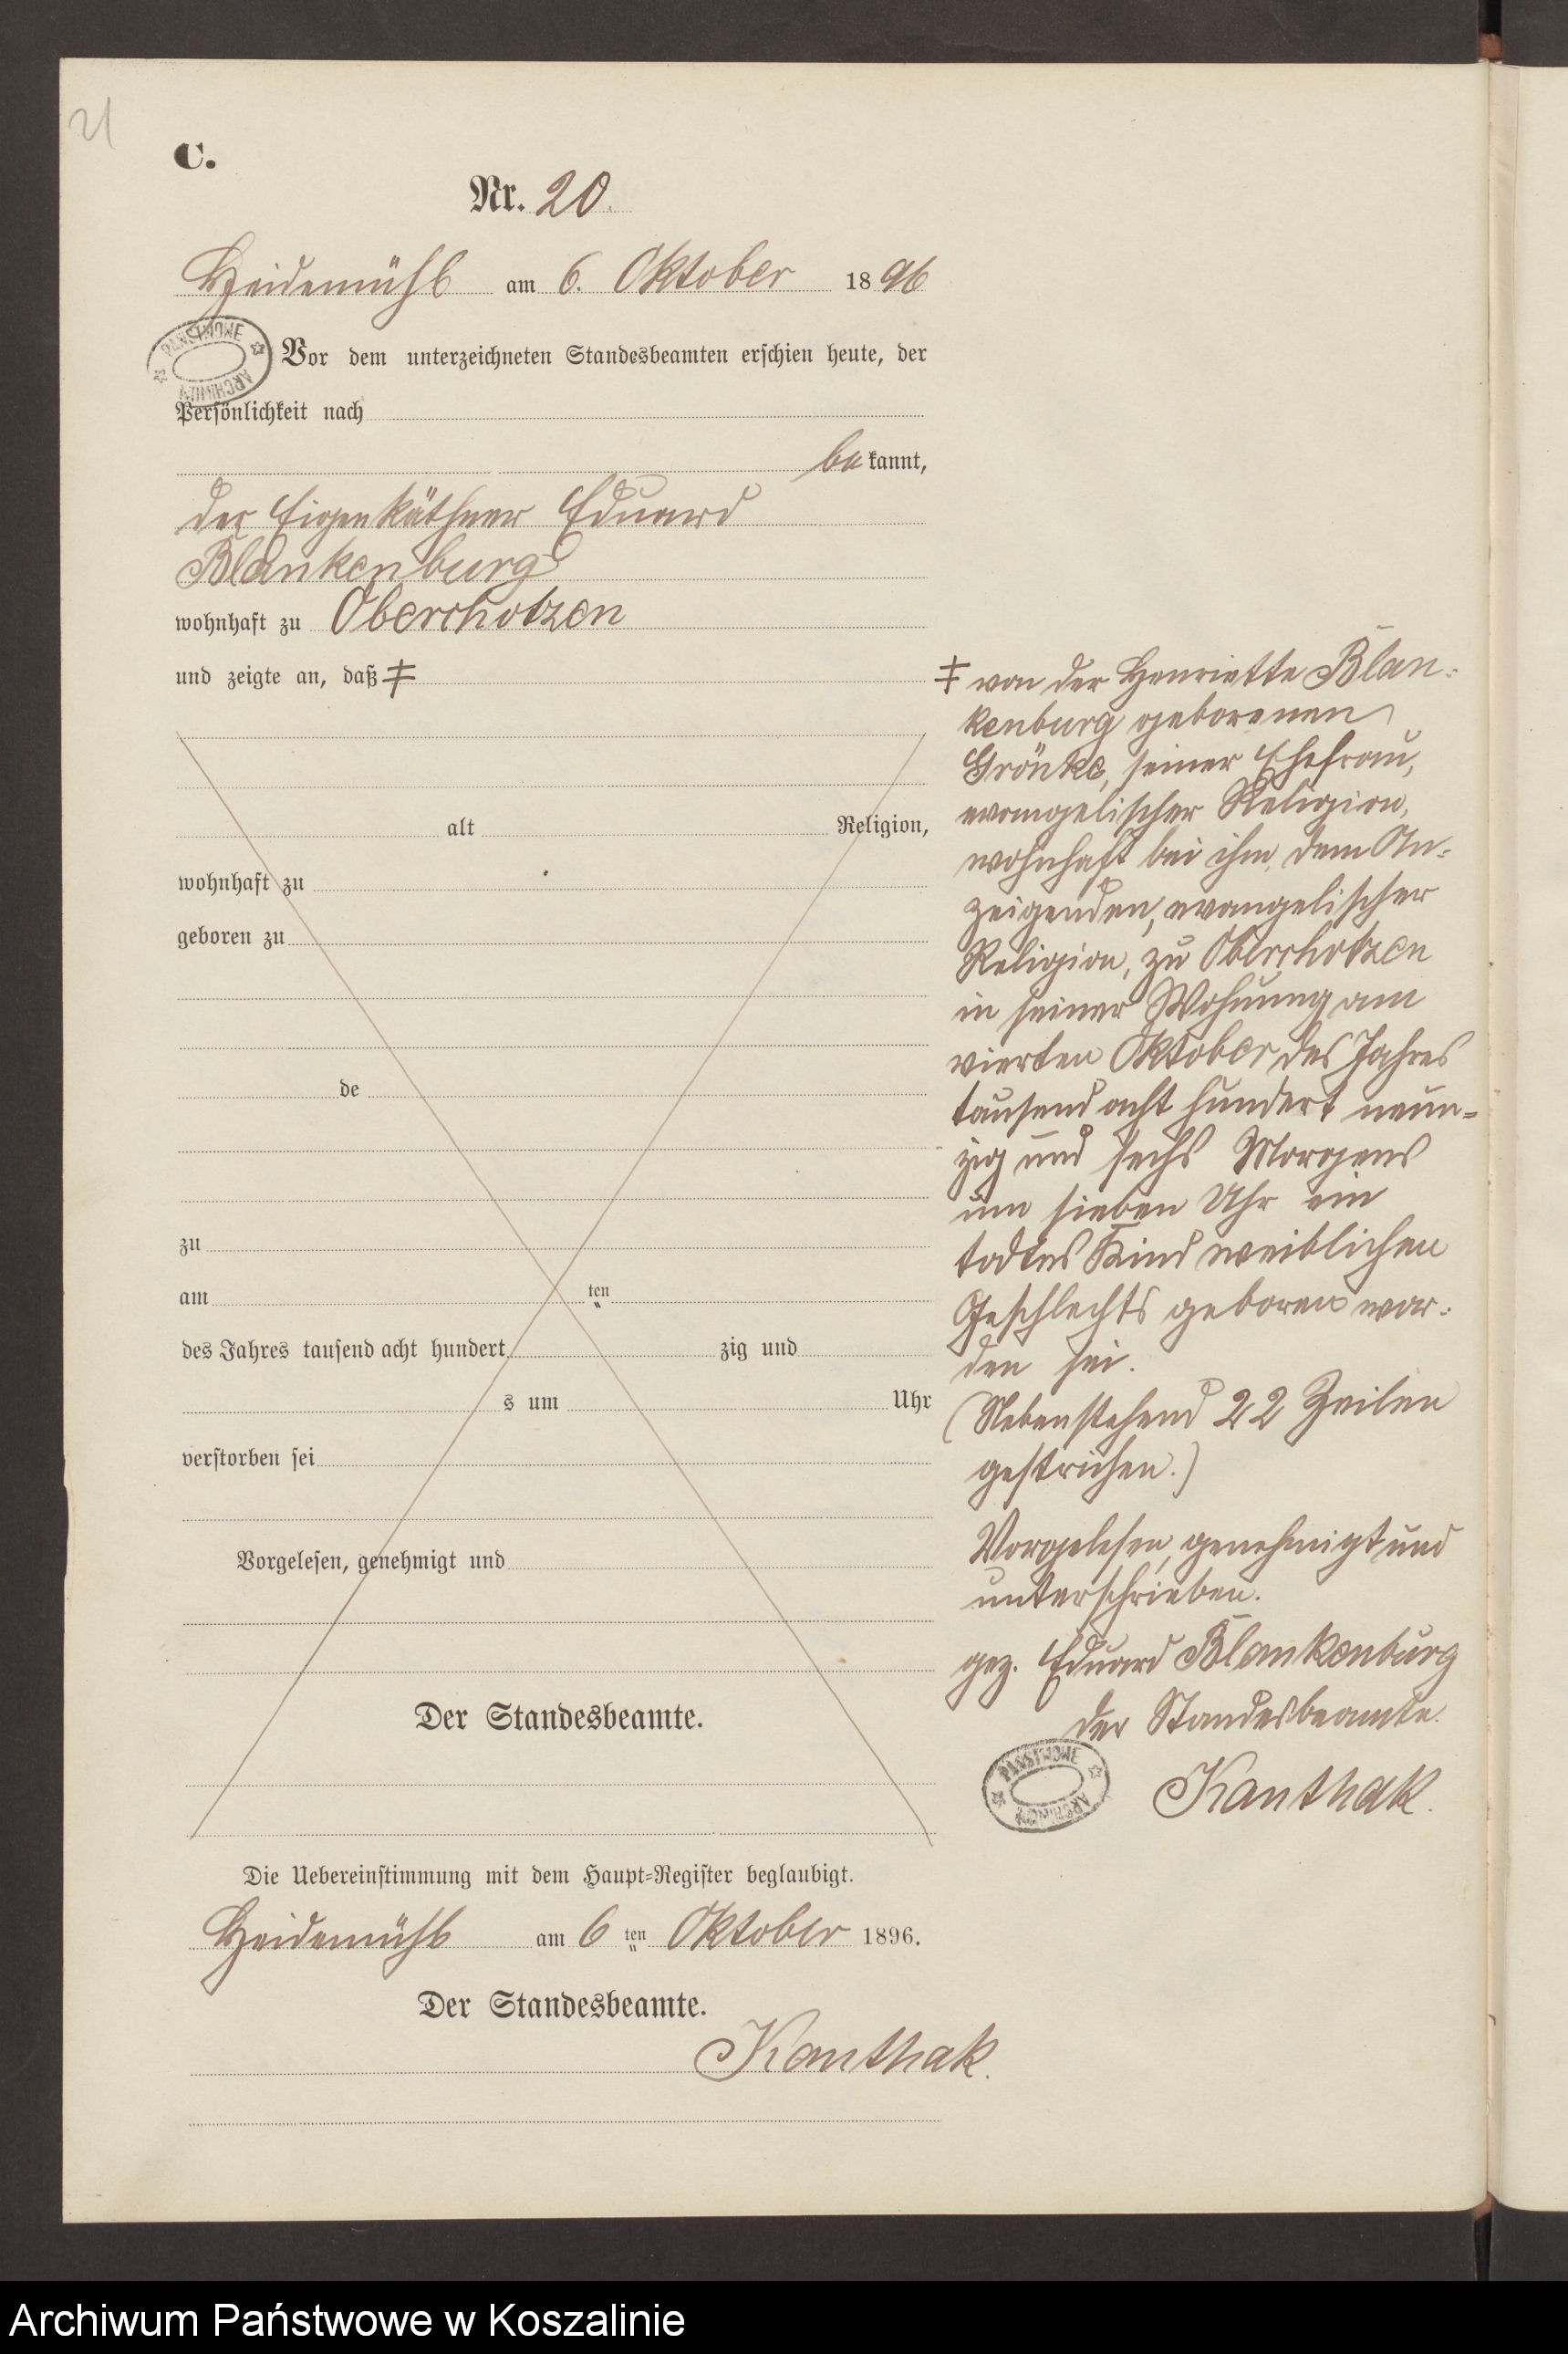 21
C.
Nr. 20.
Heidemühl am 6. Oktober 1896
PAŃSTWOWE
ARCHIWUM
Vor dem unterzeichneten Standesbeamten erschien heute, der
Persönlichkeit nach
bekannt,
der Eigenkäthner Eduard
Blankenburg
wohnhaft zu Oberchotzen
und zeigte an, daß ‡
alt Religion,
wohnhaft zu
geboren zu
de
zu
am ten
des Jahres tausend acht hundert zig und
s um Uhr
verstorben sei
Vorgelesen, genehmigt und
Der Standesbeamte.
‡ von der Henriette Blan-
kenburg geborenen
Grönke, seiner Ehefrau,
evangelischer Religion,
wohnhaft bei ihm, dem An-
zeigenden, evangelischer
Religion, zu Oberchotzen
in seiner Wohnung am
vierten Oktober des Jahres
tausend acht hundert neun-
zig und sechs Morgens
um sieben Uhr ein
todtes Kind weiblichen
Geschlechts geboren wor-
den sei.
(Nebenstehend 22 Zeilen
gestrichen.)
Vorgelesen, genehmigt und
unterschrieben.
gez. Eduard Blankenburg
der Standesbeamte.
PAŃSTWOWE
ARCHIWUM
Kanthak.
Die Uebereinstimmung mit dem Haupt-Register beglaubigt.
Heidemühl am 6 ten Oktober 1896.
Der Standesbeamte.
Kanthak.
Archiwum Państwowe w Koszalinie